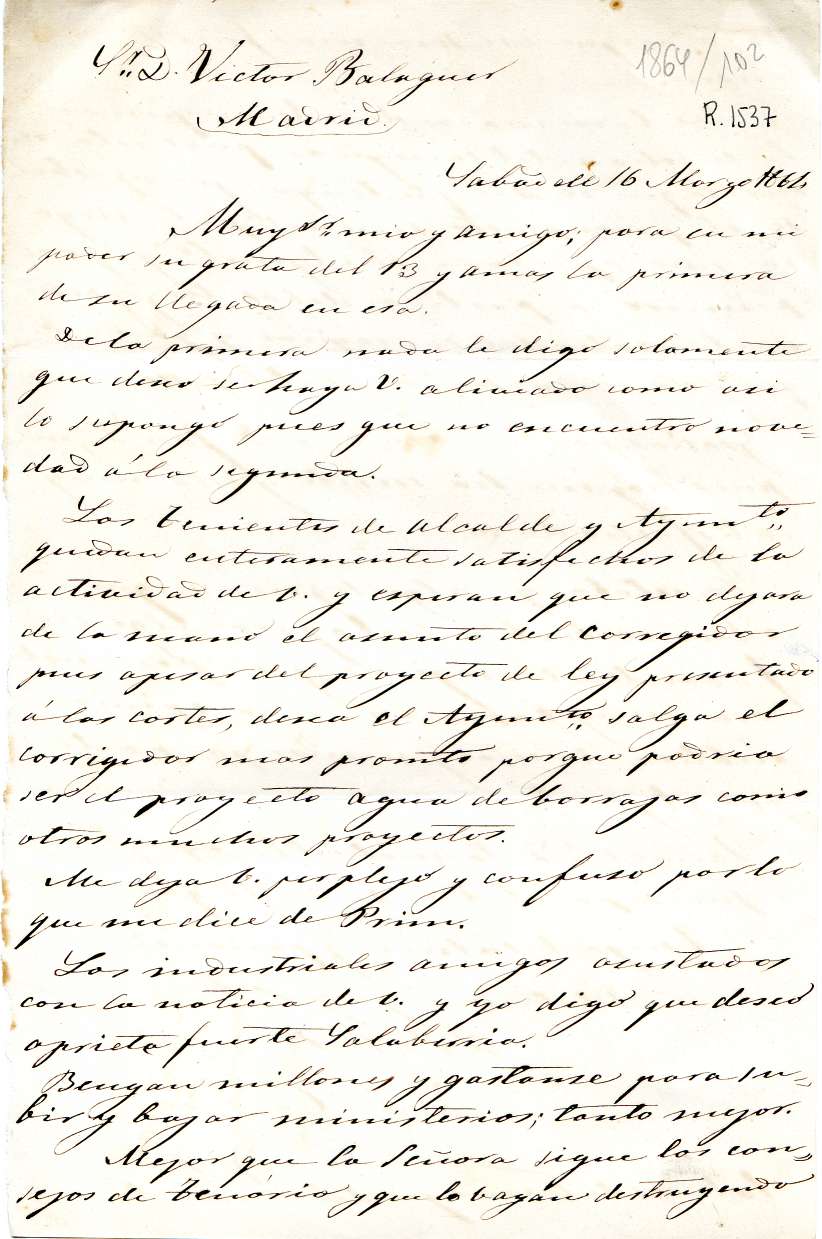 Sr. D. Victor Balaguer
Madrid.
1864/102
R. 1537
Sabadell 16 Marzo 1864
Muy Sr. mio y amigo; para en mi
poder su grata del 13 y amas la primera
de su llegada en esa.
De la primera nada le digo solamente
que deseo se haya V. aliviado como asi
lo supongo pues que no encuentro nove-
dad á la segunda.
Los tenientes de alcalde y Ayunto.
quedan enteramente satisfechos de la
actividad de V. y esperan que no dejara
de la mano el asunto del corregidor
pues apesar del proyecto de ley presentado
á las cortes, desea el Ayunto. salga el
corregidor mas promto porque podria
ser el proyecto agua de borrajas como
otros muchos proyectos.
Me deja V. perplejo y confuso por lo
que me dice de Prim.
Los industriales amigos asustados
con la noticia de V. y yo digo que deseo
aprieta fuerte Salaberria.
Bengan millones y gastanse para su-
bir y bajar ministerios; tanto mejor.
Mejor que la Señora sigue los con-
sejos de Tenório y que lo vayan destruyendo